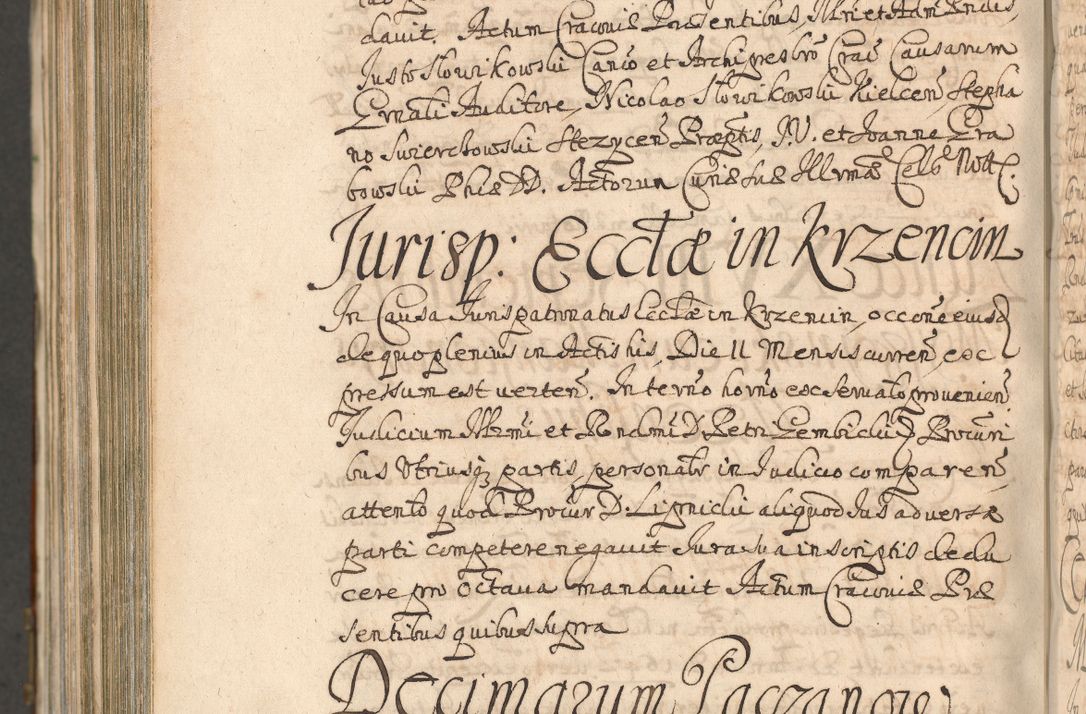 davit. Actum Cracoviæ Præsentibus, Illri et Adm Rndis,
Justo Słowikowski Canco et Archipresbro Crac Causarum
Grnali Auditore, Nicolao Słowikowski Kielcen, Stepha
no Swierchowski Stezycen Præptis, J.V. et Joanne Gra
bowski Phiæ DD. Actorum Curiæ suæ Illrmæ Celsæ Nott.
Jurisp: Ecctæ in Krzencin
In Causa Jurispatronatus Ecctæ in Krzencin, occone eiusd
de quo plenius in Actis his, Die 11 Mensis curren, ex
pressum est verten. In termo horno ex servato provenien
Judicium Illrmi et Rndmi D. Petri Gembicki D Procuri
bus Utriusq partis personalr in Judicio comparen,
attento quod Procur D. Lipnicki aliquod Jus adversæ
parti competere negavit Jura sua in scriptis dedu
cere pro octava mandavit Actum Cracoviæ Præ
sentibus quibus supra
Decimarum Paczanow